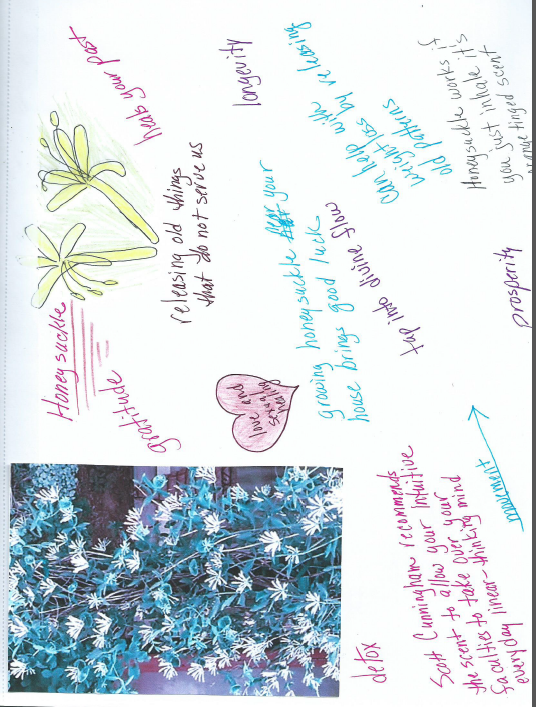 Honeysuckle
gratitude
heals your past
releasing old things
that do not serve us
longevity
love and
sexuality
healing
growing honeysuckle near your
house brings good luck
tap into divine flow
Can help with
weight loss by releasing
old patterns
Honeysuckle works if
you just inhale it's
orange tinged scent
prosperity
detox
Scott Cunningham recommends
the scent to allow your Intuitive
faculties to take over your
everyday linear-thinking mind
movement